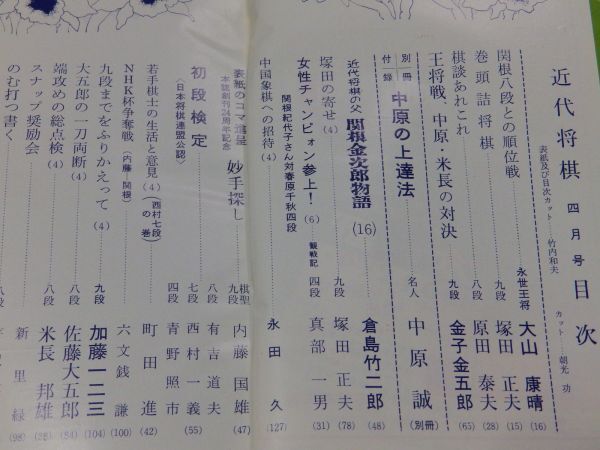 近代将棋 四月号 目次
表紙及び目次カット……竹内和夫
カット……朝光 功
関根八段との順位戦 永世王将 大山康晴 (16)
巻頭詰将棋 九段 塚田正夫 (15)
棋談あれこれ 八段 原田泰夫 (28)
王将戦、中原・米長の対決 九段 金子金五郎 (65)
別冊付録 中原の上達法 名人 中原誠 (別冊)
近代将棋の父 関根金次郎物語 (16) 倉島竹二郎 (48)
塚田の寄せ (4) 九段 塚田正夫 (78)
女性チャンピォン参上! (6) 観戦記 四段 真部一男 (31)
関根紀代子さん対春原千秋四段
中国象棋への招待 (4) 永田久 (127)
表紙のコマ進呈 妙手探し 棋聖 九段 内藤国雄 (47)
本誌創刊24周年記念
初段検定 八段 有吉道夫
〈日本将棋連盟公認〉 七段 西村一義 (55)
四段 青野照市
若手棋士の生活と意見 (4) (西村七段の巻) 町田進 (42)
NHK杯争奪戦 (内藤―関根) 六文銭謙 (100)
九段までをふりかえって (4) 九段 加藤一二三 (104)
大五郎の一刀両断 (4) 八段 佐藤大五郎 (84)
端攻めの総点検 (4) 八段 米長邦雄
スナップ奨励会 新里緑 (98)
のむ打つ書く